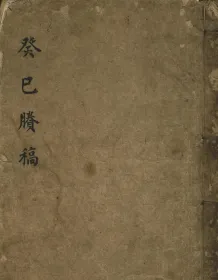 癸巳賸稿